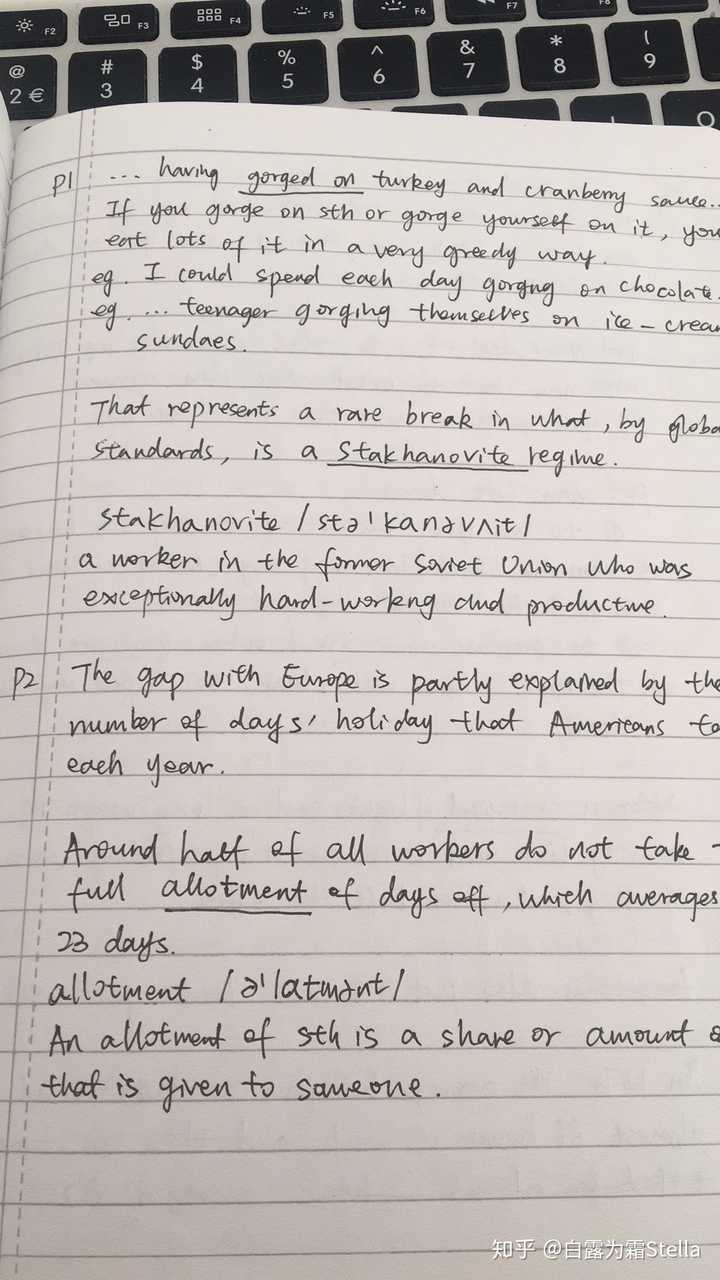 F2
F3
F4
F5
F6
F7
@
2 €
#
3
$
4
%
5
^
6
&
7
*
8
(
9
O
P1 ... having gorged on turkey and cranberry sauce..
If you gorge on sth or gorge yourself on it, you
eat lots of it in a very greedy way.
eg. I could spend each day gorgng on chocolate.
eg. ... teenager gorging themselves on ice-cream
sundaes.
That represents a rare break in what, by globa
standards, is a Stakhanovite regime.
stakhanovite /stə'kanəvʌit/
a worker in the former Soviet Union who was
exceptionally hard-workng and productive.
P2 The gap with Europe is partly explained by the
number of days' holiday that Americans ta
each year.
Around half of all workers do not take
full allotment of days off, which averages
23 days.
allotment /ə'latmənt/
An allotment of sth is a share or amount
that is given to someone.
知乎 @白露为霜Stella